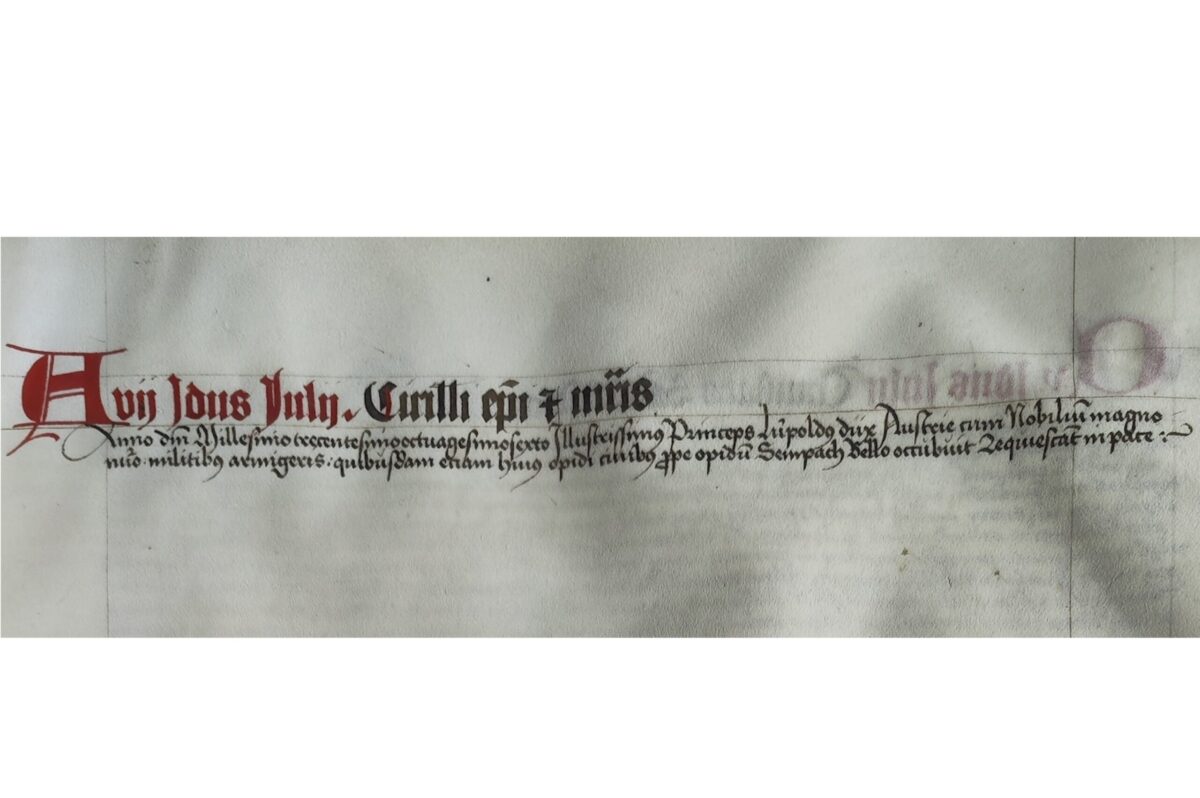 A vij Jdus Julij. Cirilli ep̄i ⁊ mr̄is
Anno dn̄i Millesimo trecentesimo octuagesimo sexto Jllustrissimꝰ Princeps Lu̍poldꝰ dux Austrie cum Nobiliū magno
nūro militibꝰ armigeris quibusdam etiam huiꝰ opidi ciuibꝰ ꝓpe opidū Sempach bello occubuit Requiescāt in pace :~